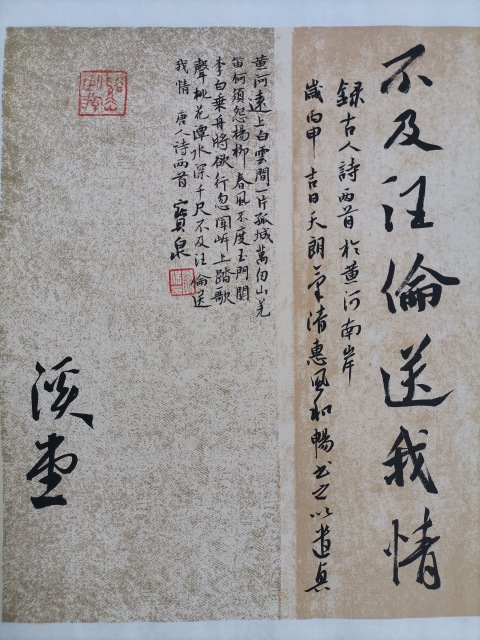 不及汪倫送我情
録古人詩两首於黄河南岸
歲丙申吉日天朗氣清惠風和暢书之以遣興
黄河遠上白雲間一片孤城萬仞山羌
笛何須怨楊柳春風不度玉門關
李白乗舟將欲行忽聞岸上踏歌
聲桃花潭水深千尺不及汪倫送
我情 唐人詩两首 寶泉
溪堂